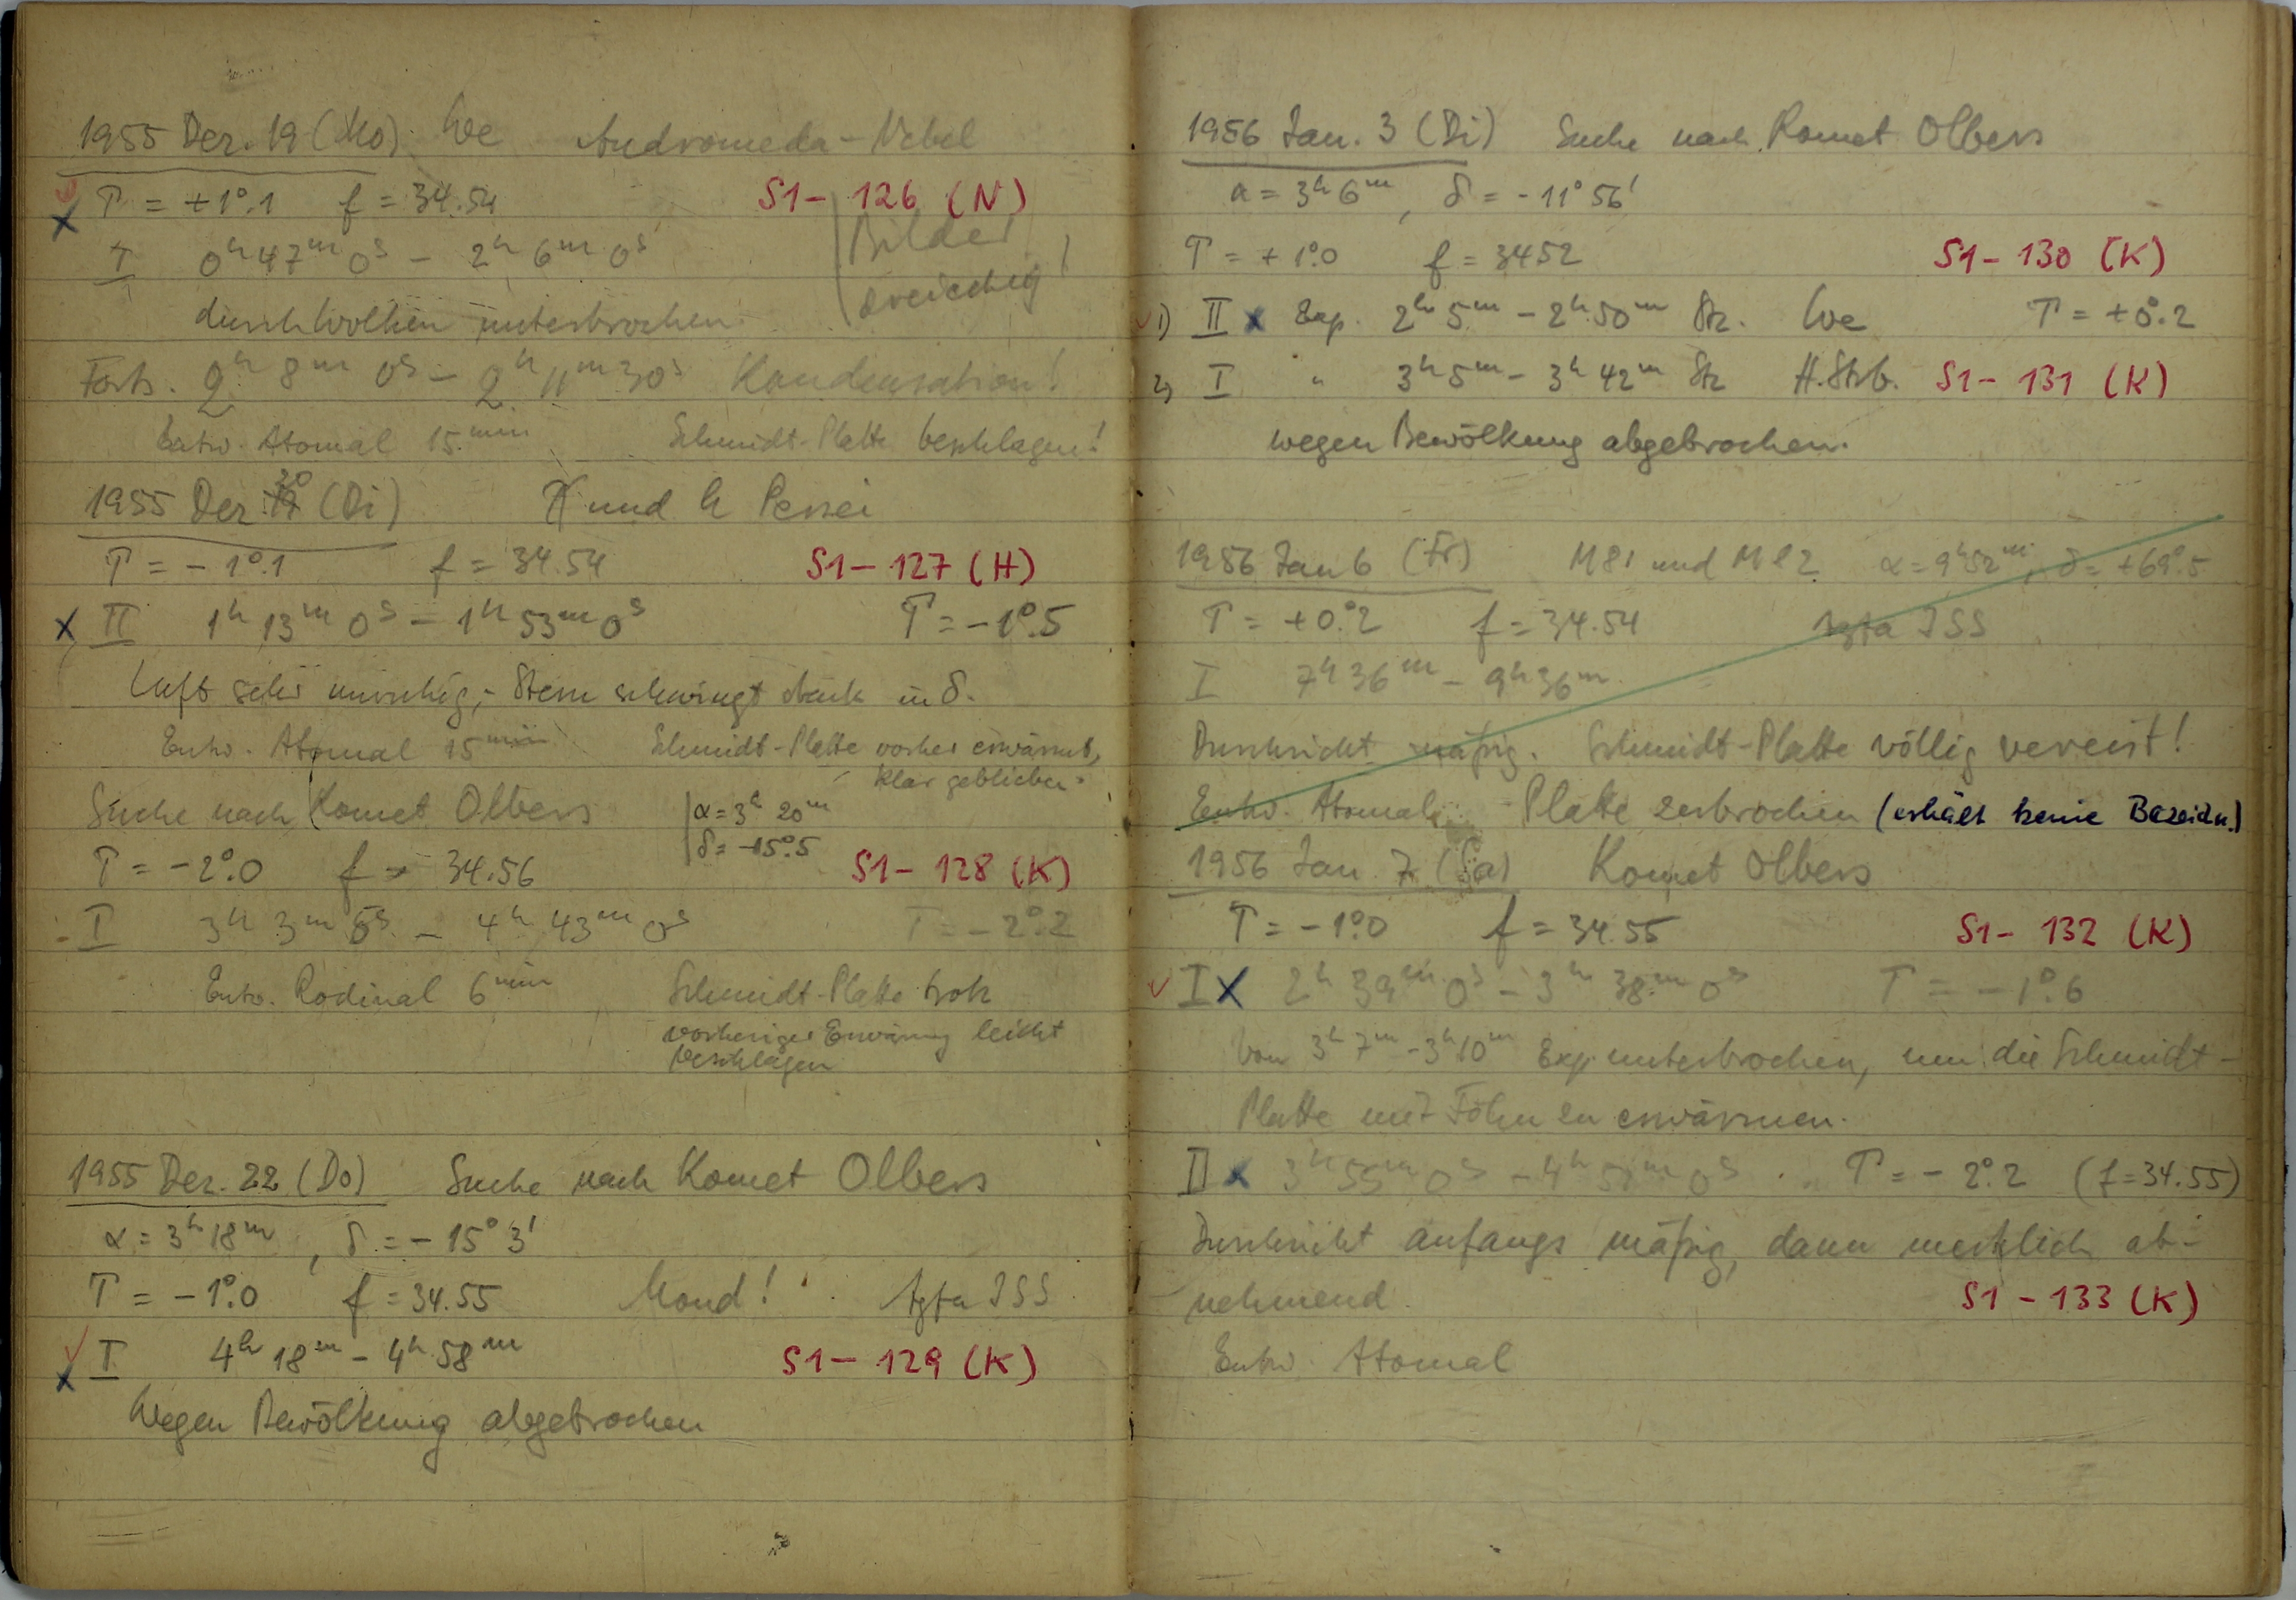 1955 Dez. 19 (Mo). We Andromeda-Nebel
T = +1°.1 f = 34.54 S1- 126 (N)
I 0h 47m 0s - 2h 6m 0s Bilder
durch Wolken unterbrochen. dreieckig!
Forts. 2h 8m 0s - 2h 11m 30s Kondensation!
Entw. Atomal 15min Schmidt-Platte beschlagen!
1955 Dez 20 (Di) χ und h Persei
T = -1°.1 f = 34.54 S1- 127 (H)
x II 1h 13m 0s - 1h 53m 0s T = -1°.5
Luft sehr unruhig, Stern schwingt stark in δ.
Entw. Atomal 15min Schmidt-Platte vorher erwärmt,
klar geblieben.
Suche nach Komet Olbers α = 3h 20m
δ = -15°.5
T = -2°.0 f = 34.56 S1- 128 (K)
I 3h 3m 0s - 4h 43m 0s T = -2°.2
Entw. Rodinal 6min Schmidt-Platte trotz
vorheriger Erwärmung leicht
beschlagen
1955 Dez. 22 (Do) Suche nach Komet Olbers
α = 3h 18m, δ = -15° 3'
T = -1°.0 f = 34.55 Mond! Agfa ISS
x I 4h 18m - 4h 58m S1- 129 (K)
Wegen Bewölkung abgebrochen
1956 Jan. 3 (Di) Suche nach Komet Olbers
α = 3h 6m, δ = -11° 56'
T = +1°.0 f = 3452 S1- 130 (K)
1) II x Exp. 2h 5m - 2h 50m Stz. We T = +0°.2
2) I " 3h 5m - 3h 42m Stz H.Strb. S1- 131 (K)
wegen Bewölkung abgebrochen.
1956 Jan 6 (Fr) M 81 und M 82 α = 9h 52m, δ = +69°.5
T = +0°.2 f = 34.54 Agfa ISS
I 7h 36m - 9h 36m
Durchsicht mäßig. Schmidt-Platte völlig vereist!
Entw. Atomal Platte zerbrochen (erhält keine Bezeichn.)
1956 Jan. 7 (Sa) Komet Olbers
T = -1°.0 f = 34.55 S1- 132 (K)
I x 2h 39m 0s - 3h 38m 0s T = -1°.6
Von 3h 7m - 3h 10m Exp. unterbrochen, um die Schmidt-
Platte mit Föhn zu erwärmen.
II x 3h 55m 0s - 4h 58m 0s T = -2°.2 (f = 34.55)
Durchsicht anfangs mäßig, dann merklich ab-
nehmend. S1 - 133 (K)
Entw. Atomal